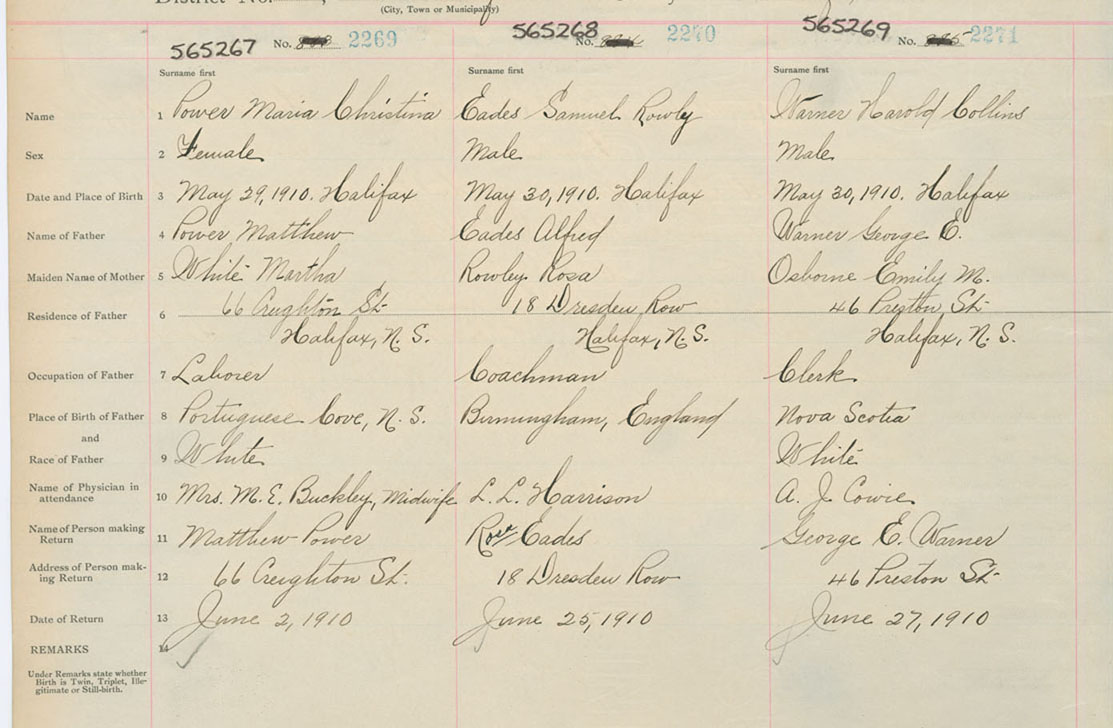 District No.
(City, Town or Municipality)
565267 No. 2269 565268 No. 2270 565269 No. 2271
Surname first Surname first Surname first
Name 1 Power Maria Christina Eades Samuel Rowly Warner Harold Collins
Sex 2 Female Male Male
Date and Place of Birth 3 May 29, 1910. Halifax May 30, 1910. Halifax May 30, 1910. Halifax
Name of Father 4 Power Matthew Eades Alfred Warner George E.
Maiden Name of Mother 5 White Martha Rowley Rosa Osborne Emily M.
Residence of Father 6 66 Creighton St- 18 Dresden Row 46 Preston St-
Halifax, N. S. Halifax, N. S. Halifax, N. S.
Occupation of Father 7 Laborer Coachman Clerk
Place of Birth of Father 8 Portuguese Cove, N. S. Birmingham, England Nova Scotia
and
Race of Father 9 White White
Name of Physician in attendance 10 Mrs. M. E. Buckley, Midwife L. L. Harrison A. J. Cowie
Name of Person making Return 11 Matthew Power Eades George E. Warner
Address of Person mak-
ing Return 12 66 Creighton St. 18 Dresden Row 46 Preston St-
Date of Return 13 June 2, 1910 June 25, 1910 June 27, 1910
REMARKS 14
Under Remarks state whether
Birth is Twin, Triplet, Ille-
gitimate or Still-birth.